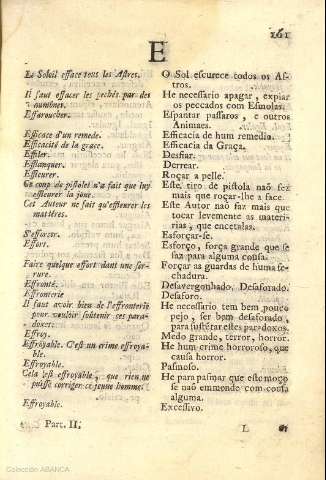 161
E
Le Soleil efface tous les Astres.
O Sol escurece todos os As-
tros.
Il faut effacer les pechés par des
aumônes.
He necessario apagar, expiar
os peccados com Esmolas.
Effaroucher.
Espantar passaros, e outros
Animaes.
Efficace d'un remede.
Efficacia de hum remedio.
Efficacité de la grace.
Efficacia da Graça.
Effiler.
Desfiar.
Efflanquer.
Derrear.
Effleurer.
Roçar a pelle.
Ce coup de pistolet n'a fait que luy
effleurer la joüe.
Este tiro de pistola naõ fez
mais que roçar-lhe a face.
Cet Auteur ne fait qu'effleurer les
matiéres.
Este Autor naõ faz mais que
tocar levemente as mate-
rias, que encetalas.
S'efforcer.
Esforçar-se.
Effort.
Esforço, força grande que se
faz para alguma cousa.
Faire quelque effort dans une ser-
rure.
Forçar as guardas de huma fe-
chadura.
Effronté.
Desavergonhado, Desaforado.
Effronterie
Desaforo.
Il faut avoir bien de l'effronterie
pour vouloir soûtenir ces para-
doxes.
He necessario tem bem pouco
pejo, ser bem desaforado,
para sustẽtar estes paradoxos.
Effroy.
Medo grande, terror, horror.
Effroyable. C'est un crime effroya-
ble.
He hum crime horroroso, que
causa horror.
Effroyable.
Pasmoso.
Cela est effroyable, que rien ne
puisse corriger ce jeune homme.
He para pasmar que este moço
se naõ emmende com cousa
alguma.
Effroyable.
Excessivo.
Part. II.
L
Colección ABANCA